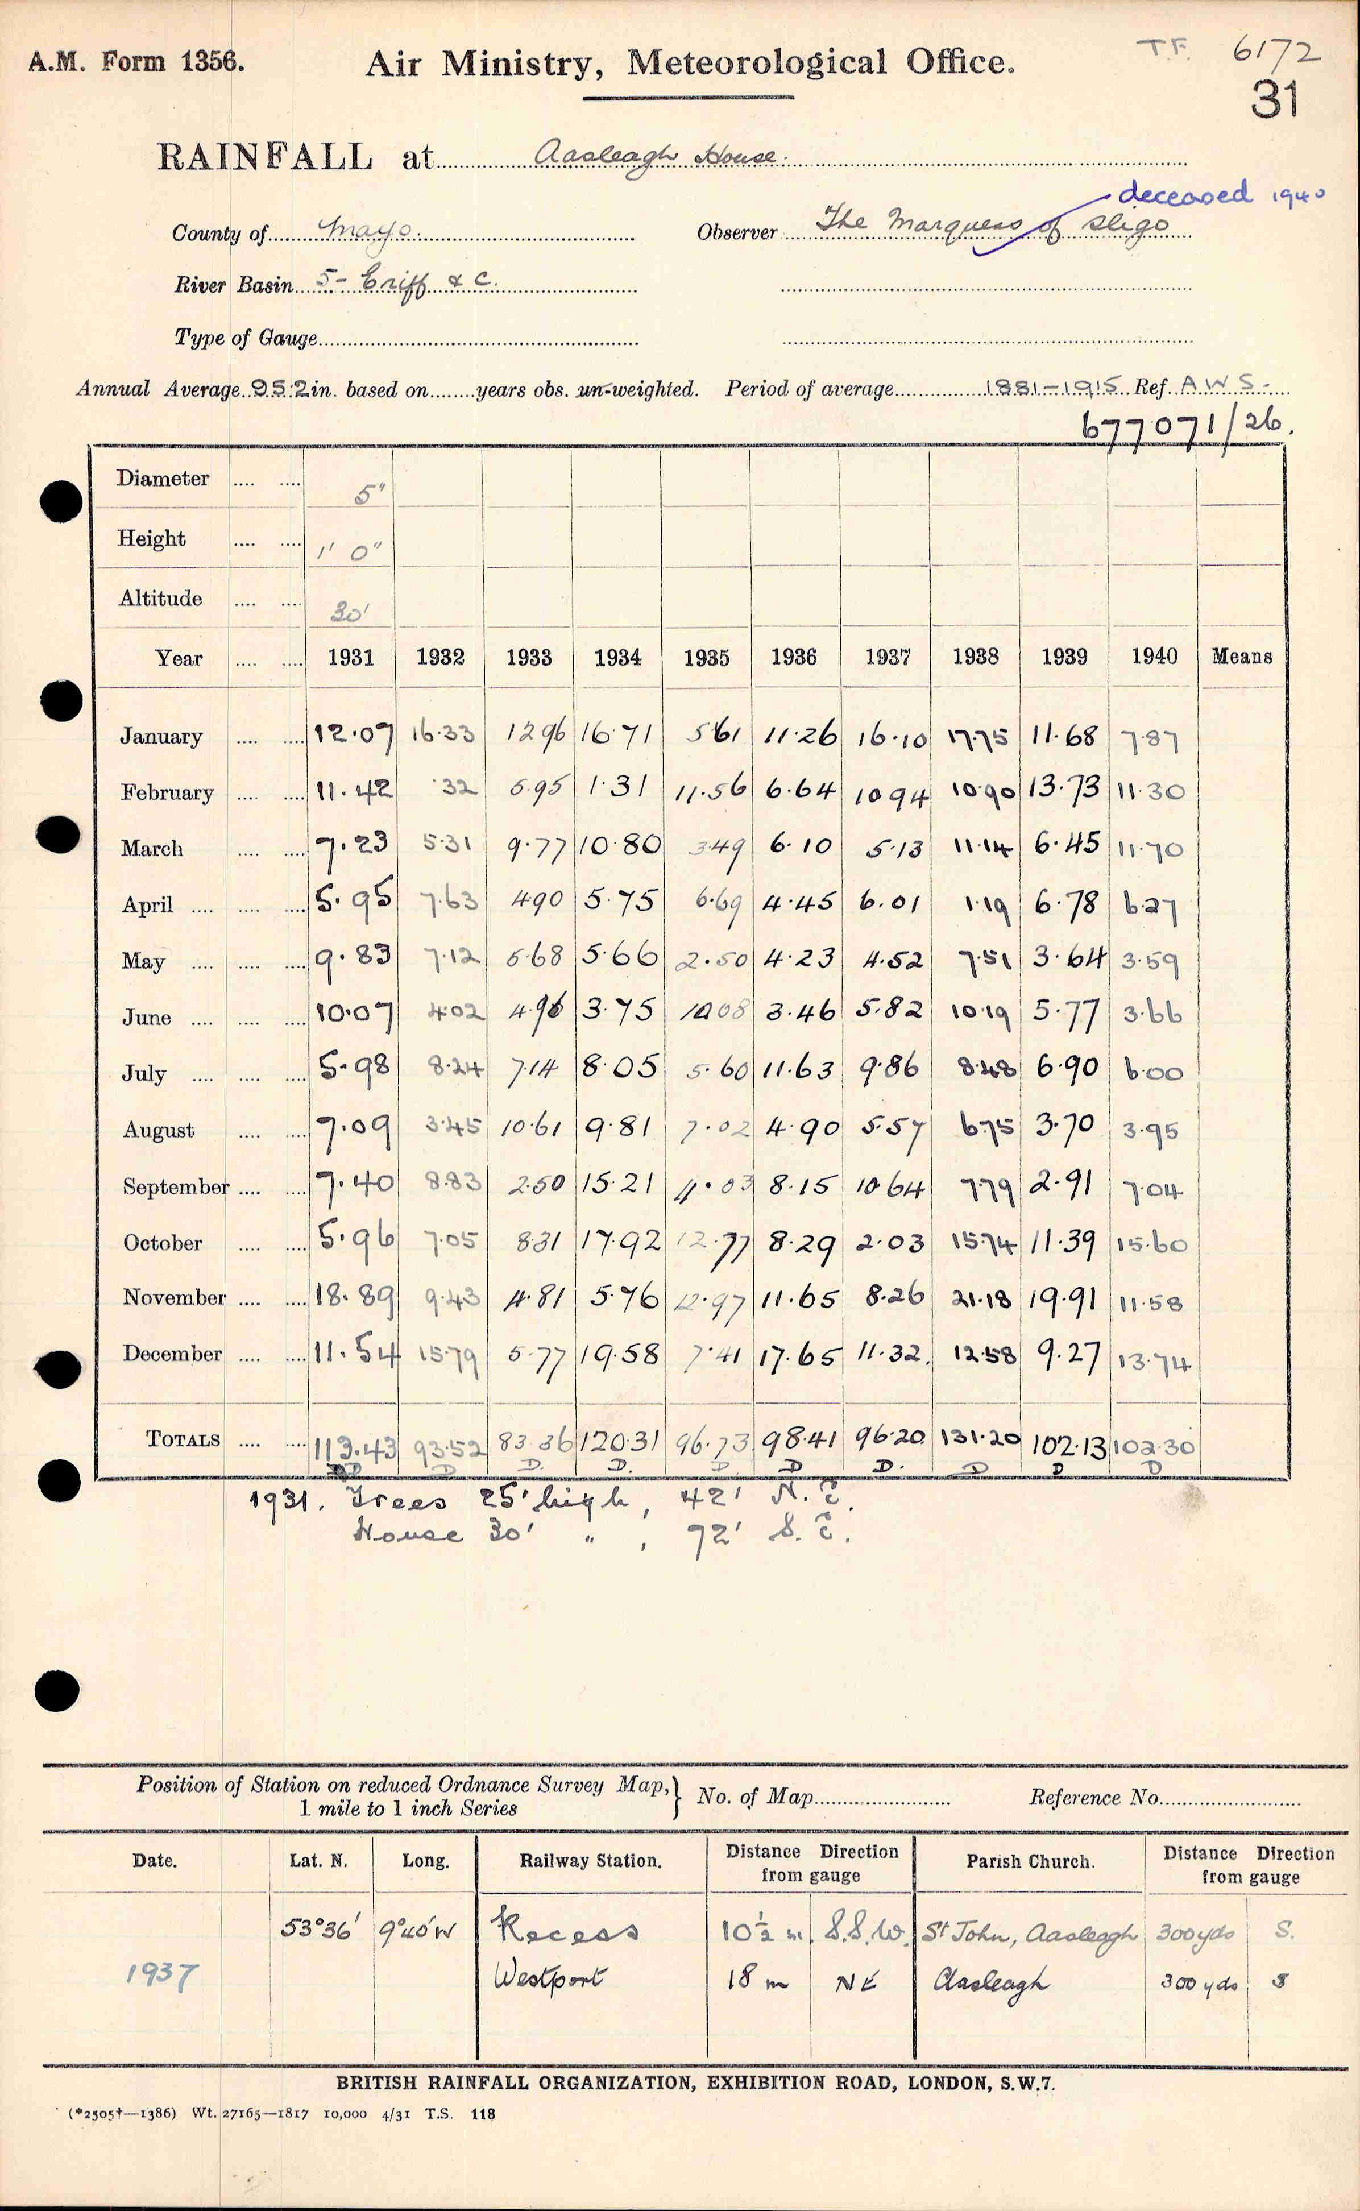 A.M. Form 1356. Air Ministry, Meteorological Office. T.F. 6172
31
RAINFALL at Aasleagh House.
deceased 1940
County of Mayo. Observer The Marquess of Sligo
River Basin 5 - Erriff & C.
Type of Gauge
Annual Average 95.2 in. based on years obs. un-weighted. Period of average 1881-1915 Ref A W S.-
677071/26.
Diameter 5"
Height 1' 0"
Altitude 30'
Year 1931 1932 1933 1934 1935 1936 1937 1938 1939 1940 Means
January 12.07 16.33 12.96 16.71 5.61 11.26 16.10 17.75 11.68 7.87
February 11.42 .32 5.95 1.31 11.56 6.64 10.94 10.90 13.73 11.30
March 7.23 5.31 9.77 10.80 3.49 6.10 5.13 11.14 6.45 11.70
April 5.95 7.63 4.90 5.75 6.69 4.45 6.01 1.19 6.78 6.27
May 9.83 7.12 5.68 5.66 2.50 4.23 4.52 7.51 3.64 3.59
June 10.07 4.02 4.96 3.75 10.08 3.46 5.82 10.19 5.77 3.66
July 5.98 8.24 7.14 8.05 5.60 11.63 9.86 8.48 6.90 6.00
August 7.09 3.45 10.61 9.81 7.02 4.90 5.57 6.75 3.70 3.95
September 7.40 8.83 2.50 15.21 11.03 8.15 10.64 7.79 2.91 7.04
October 5.96 7.05 8.31 17.92 12.77 8.29 2.03 15.74 11.39 15.60
November 18.89 9.43 4.81 5.76 12.97 11.65 8.26 21.18 19.91 11.58
December 11.54 15.79 5.77 19.58 7.41 17.65 11.32 12.58 9.27 13.74
TOTALS 113.43 93.52 83.36 120.31 96.73 98.41 96.20 131.20 102.13 102.30
D D D. D. D. D D. D D D
1931. Trees 25' high, 42' N.E.
House 30' " , 72' S.E.
Position of Station on reduced Ordnance Survey Map, 1 mile to 1 inch Series } No. of Map Reference No.
Date. Lat. N. Long. Railway Station. Distance Direction from gauge Parish Church. Distance Direction from gauge
53°36' 9°40'W Recess 10½ m. S.S.W. St John, Aasleagh 300yds S.
1937 Westport 18 m NE Aasleagh 300 yds S
BRITISH RAINFALL ORGANIZATION, EXHIBITION ROAD, LONDON, S.W.7.
(*2505†—1386) Wt. 27165—1817 10,000 4/31 T.S. 118